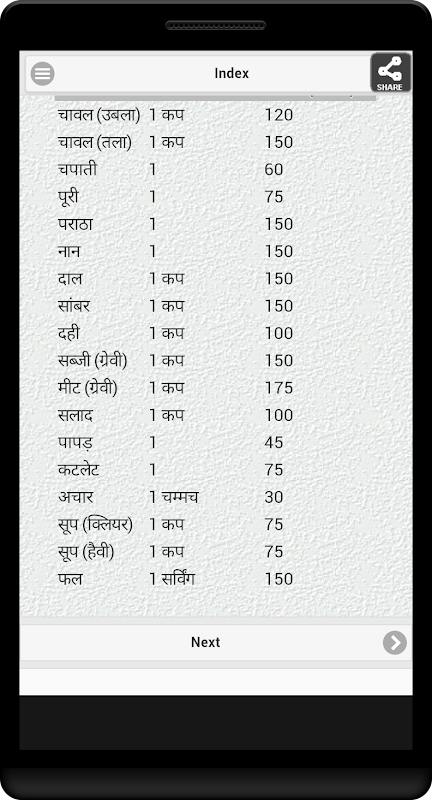 Index
SHARE
चावल (उबला) 1 कप 120
चावल (तला) 1 कप 150
चपाती 1 60
पूरी 1 75
पराठा 1 150
नान 1 150
दाल 1 कप 150
सांबर 1 कप 150
दही 1 कप 100
सब्जी (ग्रेवी) 1 कप 150
मीट (ग्रेवी) 1 कप 175
सलाद 1 कप 100
पापड़ 1 45
कटलेट 1 75
अचार 1 चम्मच 30
सूप (क्लियर) 1 कप 75
सूप (हैवी) 1 कप 75
फल 1 सर्विंग 150
Next